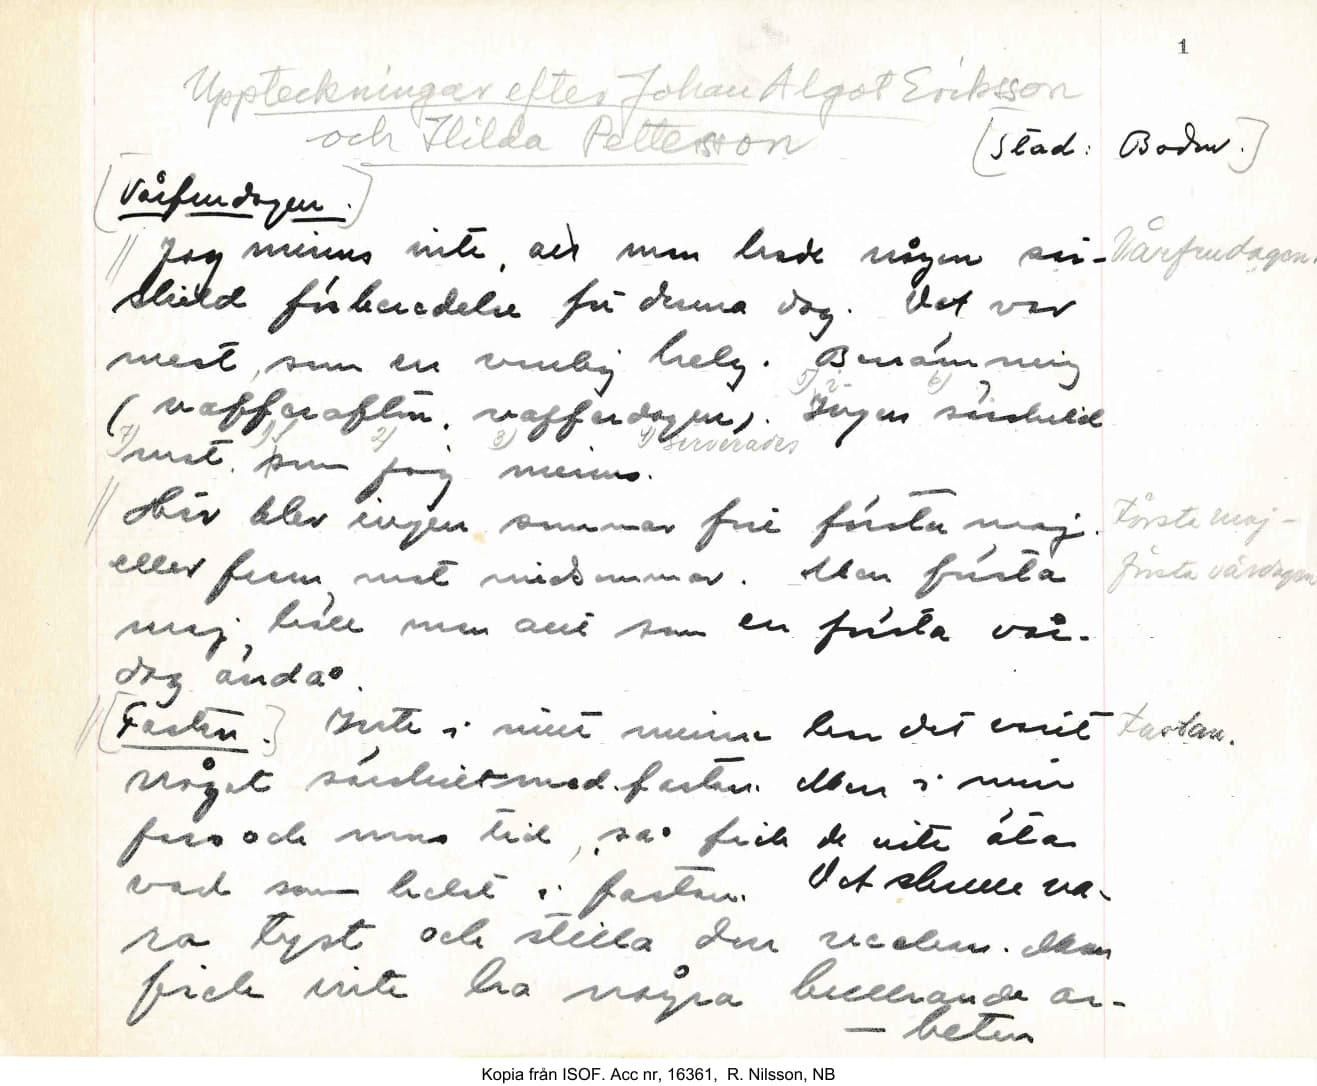 1
Uppteckningar efter Johan Algot Eriksson
och Hilda Pettersson
[Stad: Boden.]
[Vårfrudagen.]
// Jag minns inte, att man hade någon sär- Vårfrudagen.
skild förberedelse för denna dag. Det var
mest, som en vanlig helg. Benämning
5) 6)
(vafferafton, vafferdagen). Ingen särskild
7) 1) 2) 3) 4) serverades
mat som jag minns.
// Här blev ingen sommar före första maj. Första maj -
eller fram mot midsommar. Men första första vårdagen
maj, höll man allt som en första vår-
dag ända°.
// [Fastan.] Inte i mitt minne har det varit Fastan.
något särskilt med fastan. Men i min
fars och mors tid, så fick de inte äta
vad som helst i fastan. Det skulle va-
ra tyst och stilla den veckan. Man
fick inte ha några bullrande ar-
- beten
Kopia från ISOF. Acc nr, 16361, R. Nilsson, NB